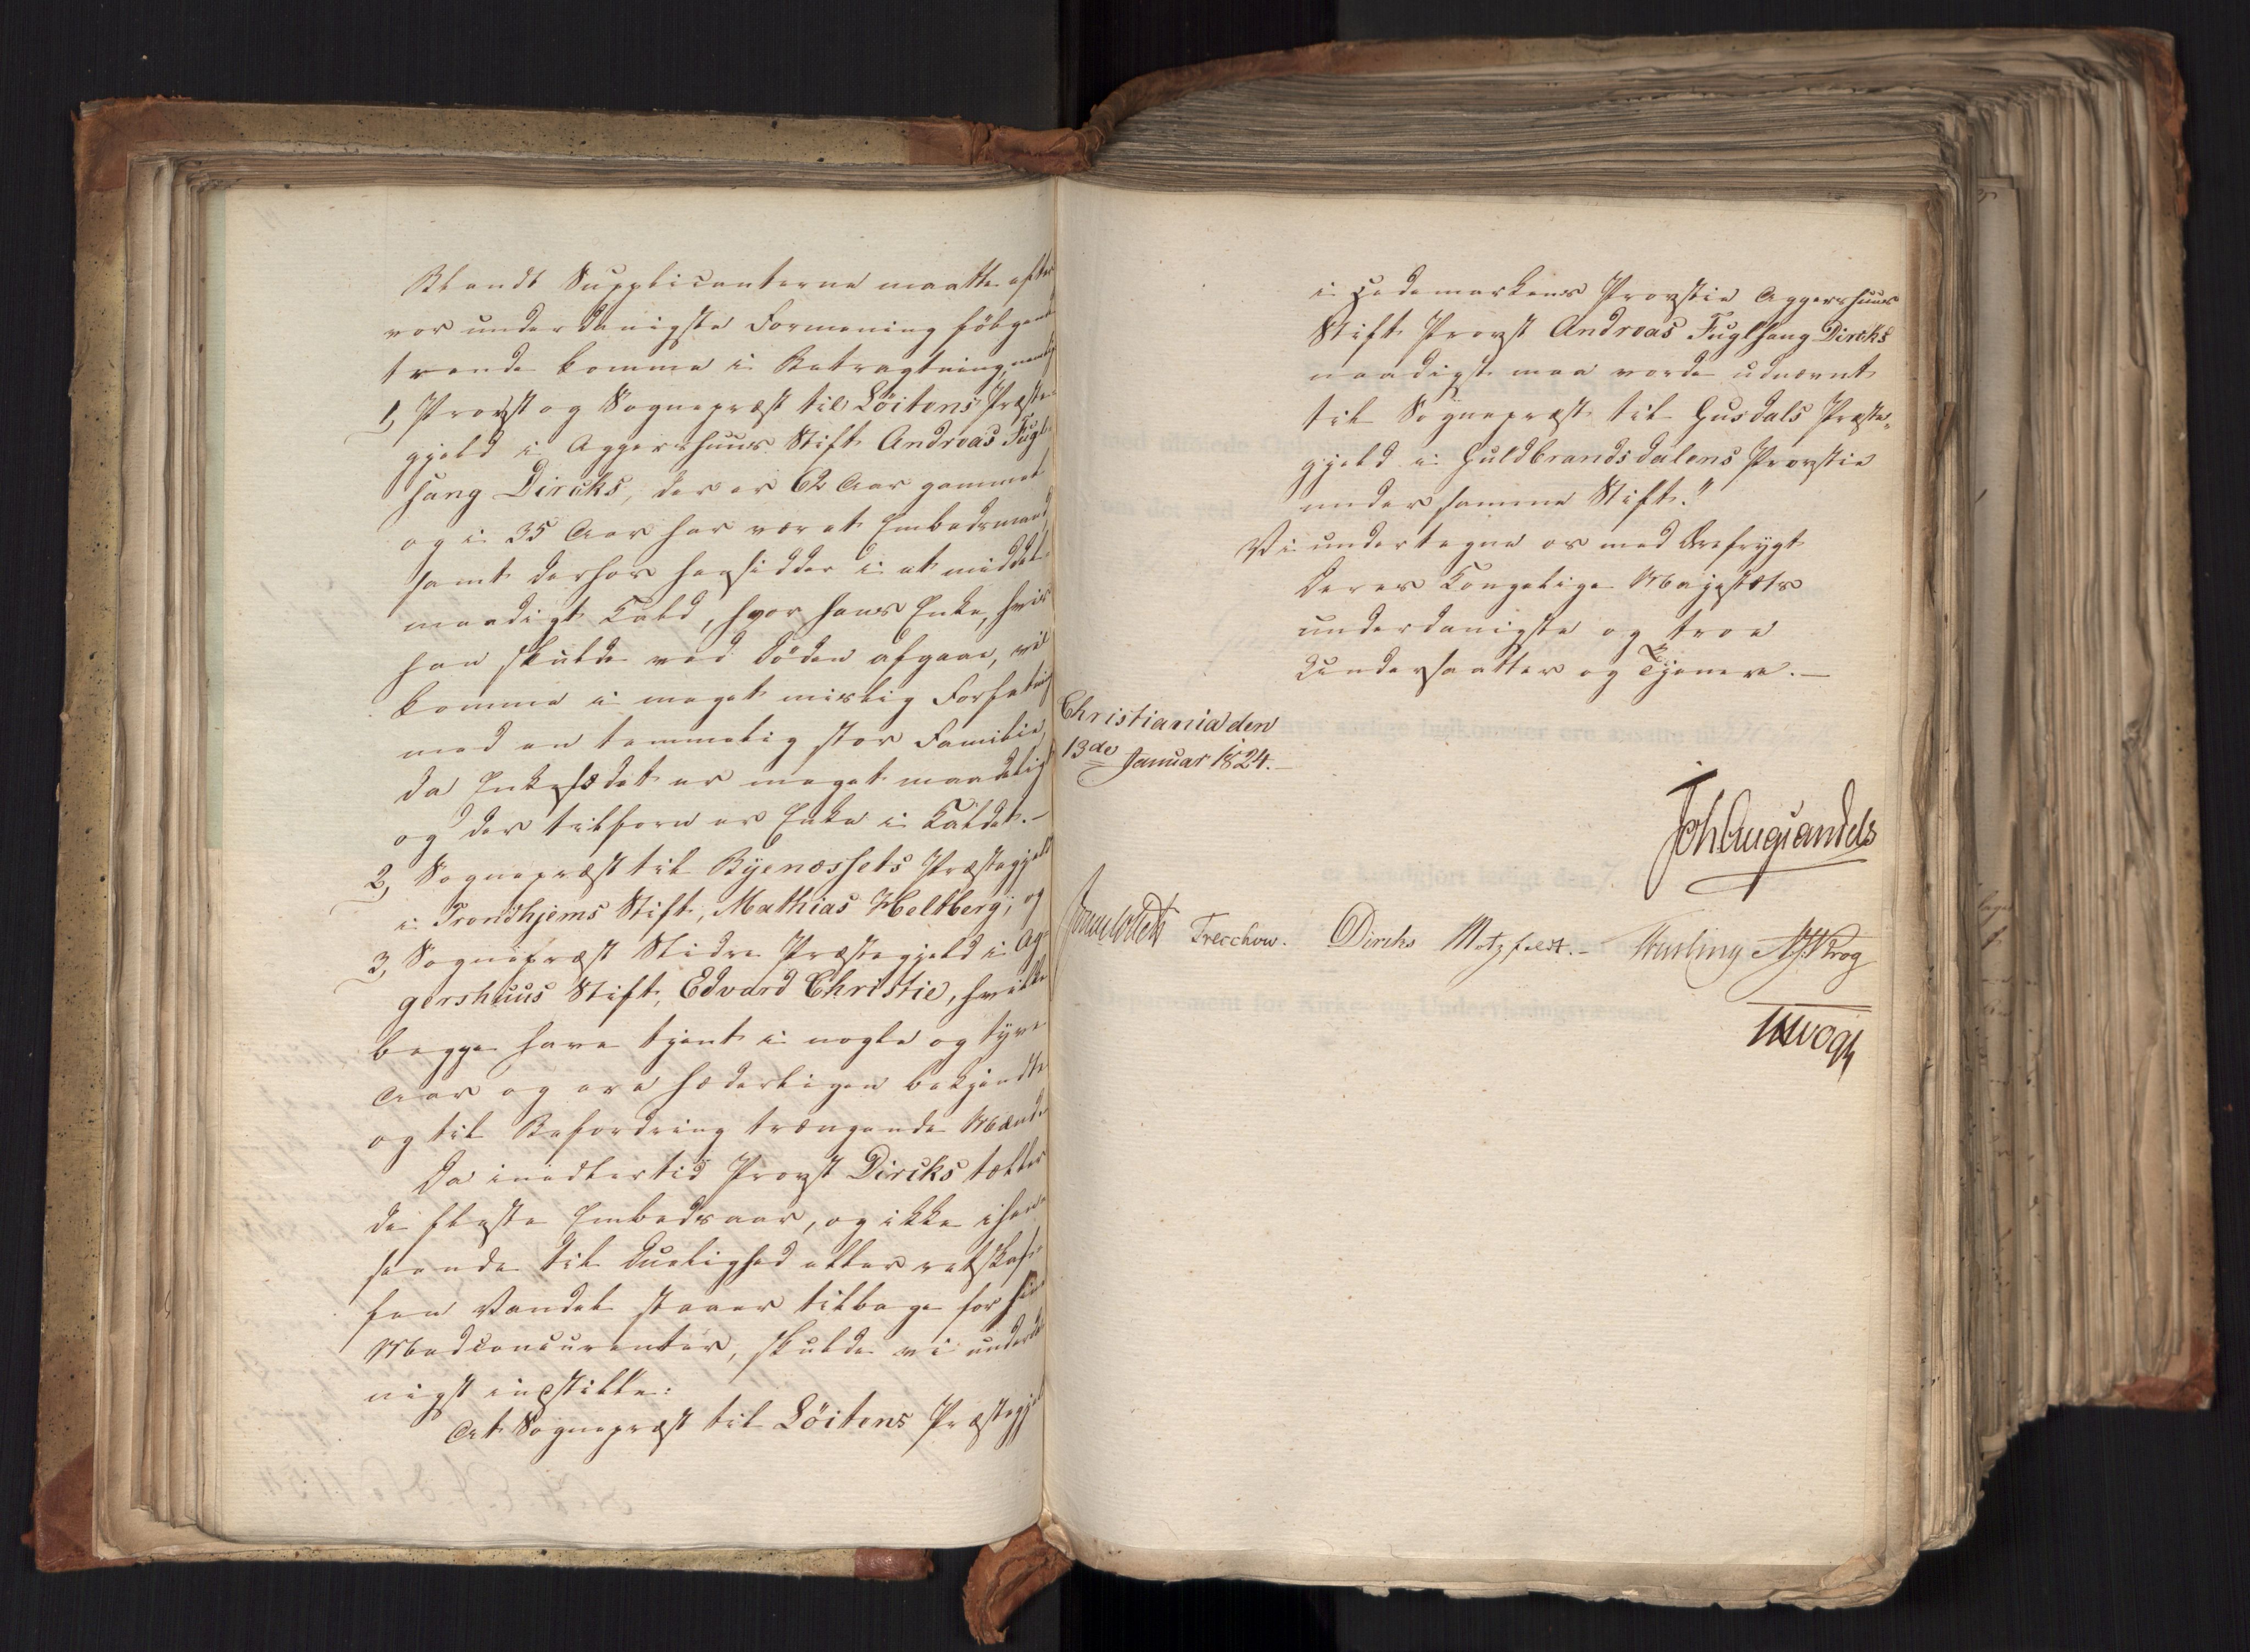 Blandt Supplicanterne maatte efter
vor underdanigste Formening følgende
trende komme i Betragtning, nemlig
1, Provst og Sognepræst til Löitens Præste-
gjeld i Aggershuus Stift Andreas Fugl-
sang Dircks, der er 62 Aar gammel
og i 35 Aar har været Embedsmand,
samt derhos hensidder i et middel-
maadigt Kald, hvor hans Enke, hvis
han skulde ved Döden afgaae, vil
komme i meget mislig Forfatning
med en temmelig stor Familie,
da Enkesædet er meget maadeligt
og der tilforn er Enke i Kaldet.-
2, Sognepræst til Byenæssets Præstegjeld
i Trondhjems Stift, Mathias Heltberg; og
3, Sognepræst Slidre Præstegjeld i Ag-
gershuus Stift, Edvard Christie, hvilke
begge have tjent i nogle og tyve
Aar og ere hæderligen bekjendte
og til Befordring trængende Mænd.
Da imidlertid Provst Dircks tæller
de fleste Embedsaar, og ikke i hen-
seende til Duelighed eller retskaf-
fen Vandel staaer tilbage for sine
Medconcurenter, skulde vi underda-
nigst indstille:
At Sognepræst til Löitens Præstegjeld
i Hedemarkens Provstie Aggershuus
Stift Provst Andreas Fuglsang Dircks
naadigst maa vorde udnævnt
til Sognepræst til Gusdals Præste-
gjeld i Guldbrandsdalens Provstie
under samme Stift."
Vi undertegne os med Ærefrygt
Deres Kongelige Majestæts
underdanigste og troe
Undersaatter og Tjenere.-
Christiania den
13de Januar 1824.-
Joh Aug Sandels
Jonas Collett Treschow. Diriks Motzfeldt.- Fasting M J Krog
JH Vogt